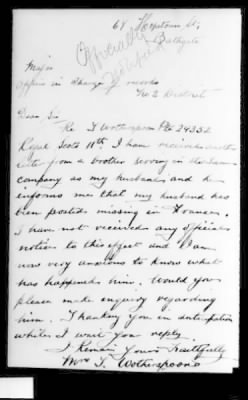 68 Hopetown St,
Bathgate
Officially
Notified
Major
Officer in Charge of records
No 2 District
Dear Sir
Re T Wotherspoon Pte 24352
Royal Scots 11th I have received
letter from a brother serving in the same
company as my husband and he
informs me that my husband has
been posted missing in France.
I have not received any official
notice to this effect and I am
now very anxious to know what
has happened him. Would you
please make enquiry regarding
him. Thanking you in anticipation
whiles I wait your reply
I Remain Yours Faithfully
Mrs T. Wotherspoon